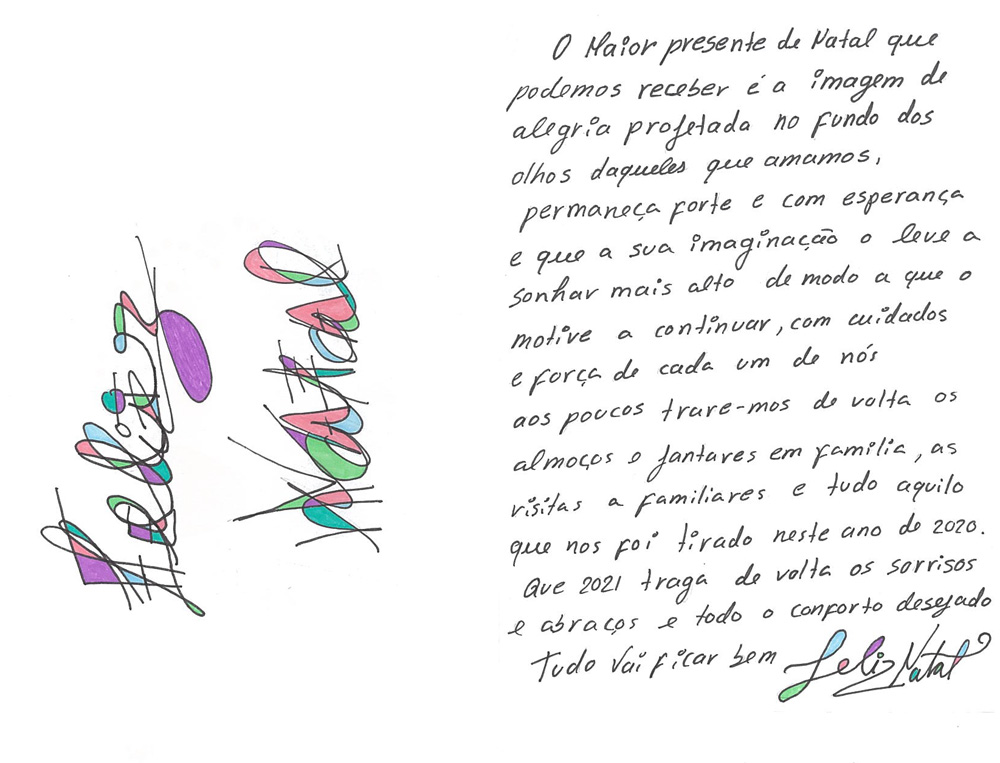 Feliz
Natal
O Maior presente de Natal que
podemos receber é a imagem de
alegria profetada no fundo dos
olhos daqueles que amamos,
permaneça forte e com esperança
e que a sua imaginação o leve a
sonhar mais alto de modo a que o
motive a continuar, com cuidados
e força de cada um de nós
aos poucos trare-mos de volta os
almoços e jantares em família, as
visitas a familiares e tudo aquilo
que nos foi tirado neste ano de 2020.
Que 2021 traga de volta os sorrisos
e abraços e todo o conforto desejado
Tudo vai ficar bem Feliz Natal